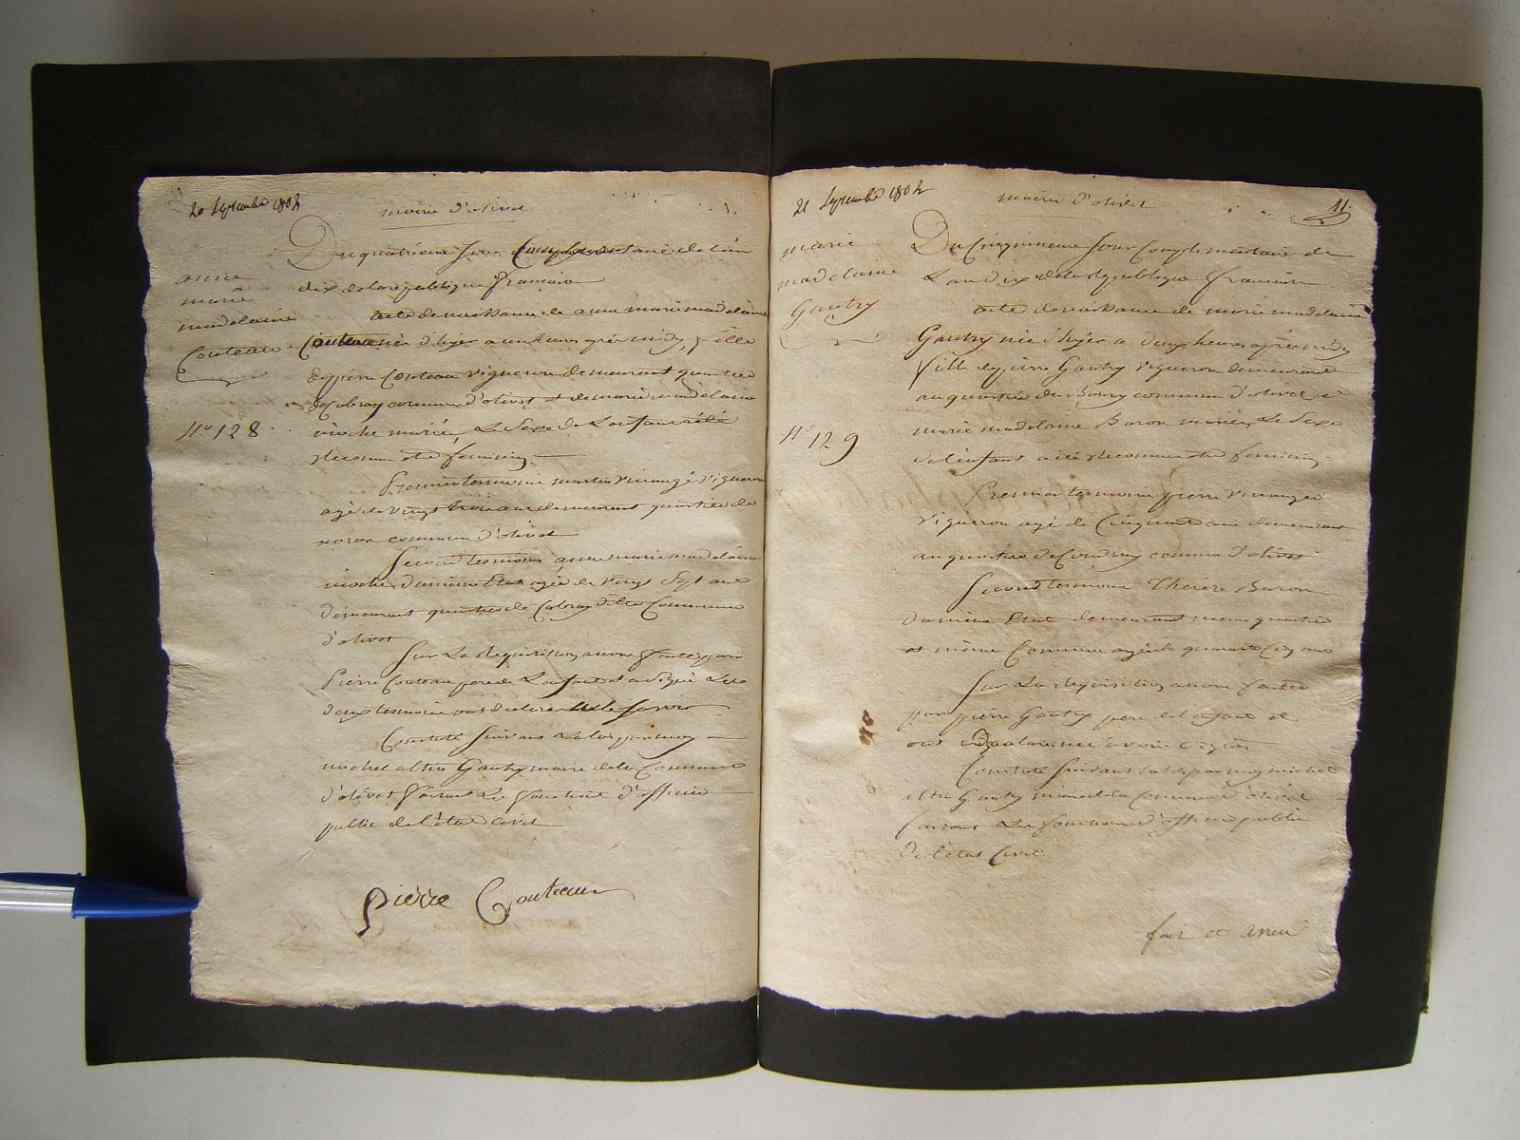 20 Septembre 1802
mairie d'olivet
Du quatrieme Jour Complementaire de L'an
dix de la republique francaise
anne
marie
madelaine
Couteau
N° 128
acte de naissance de anne marie madelaine
Couteau née d'hier a heures après midy, fille
de pierre Couteau vigneron demeurant quartier
de commune d'olivet et de marie madelaine
mariés, Le Sexe de L'enfant a été
reconnu etre feminin
Premier temoin martin vigneron
agé de vingt trois ans demeurant quartier de
commune d'olivet
Second temoin anne marie madelaine
agée de vingt Sept ans
demeurant quartier de Commune
d'olivet
Sur La Requisition a nous faitte par
Pierre Couteau pere de L'enfant et a Signé Les
deux temoins ont declaré ne le Savoir
Constaté Suivant La Loi par moy
michel Gautry maire de la Commune
d'olivet faisant Les fonctions d'officier
public de l'état Civil
pierre Couteau
21 Septembre 1802
mairie d'olivet
11.
Du Cinquieme Jour Complementaire de
L'an dix de la Republique francaise
marie
madelaine
Gautry
N° 129
acte de naissance de marie madelaine
Gautry née d'hyer a heures après midy
fille de pierre Gautry vigneron demeurant
au quartier du Bourg commune d'olivet et
marie madelaine Baron mariés, Le Sexe
de l'enfant a été reconnu etre feminin
Premier temoin pierre
vigneron agé de Cinquante ans demeurant
au quartier de commune d'olivet
Second temoin Therese Baron
demeurant meme quartier
et même Commune agée de quarante Cinq ans
Sur La requisition a nous faitte
par pierre Gautry pere de l'enfant et
ont declaré ne Savoir Signer
Constaté Suivant La Loi par moy michel
Gautry maire de la Commune d'olivet
faisant Les fonctions d'officier public
de l'état Civil